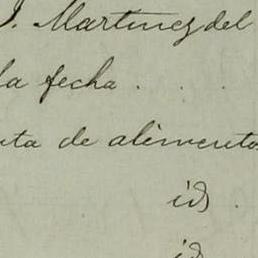 J. Martinez del
la fecha . . .
nta de alimentos
id .
id